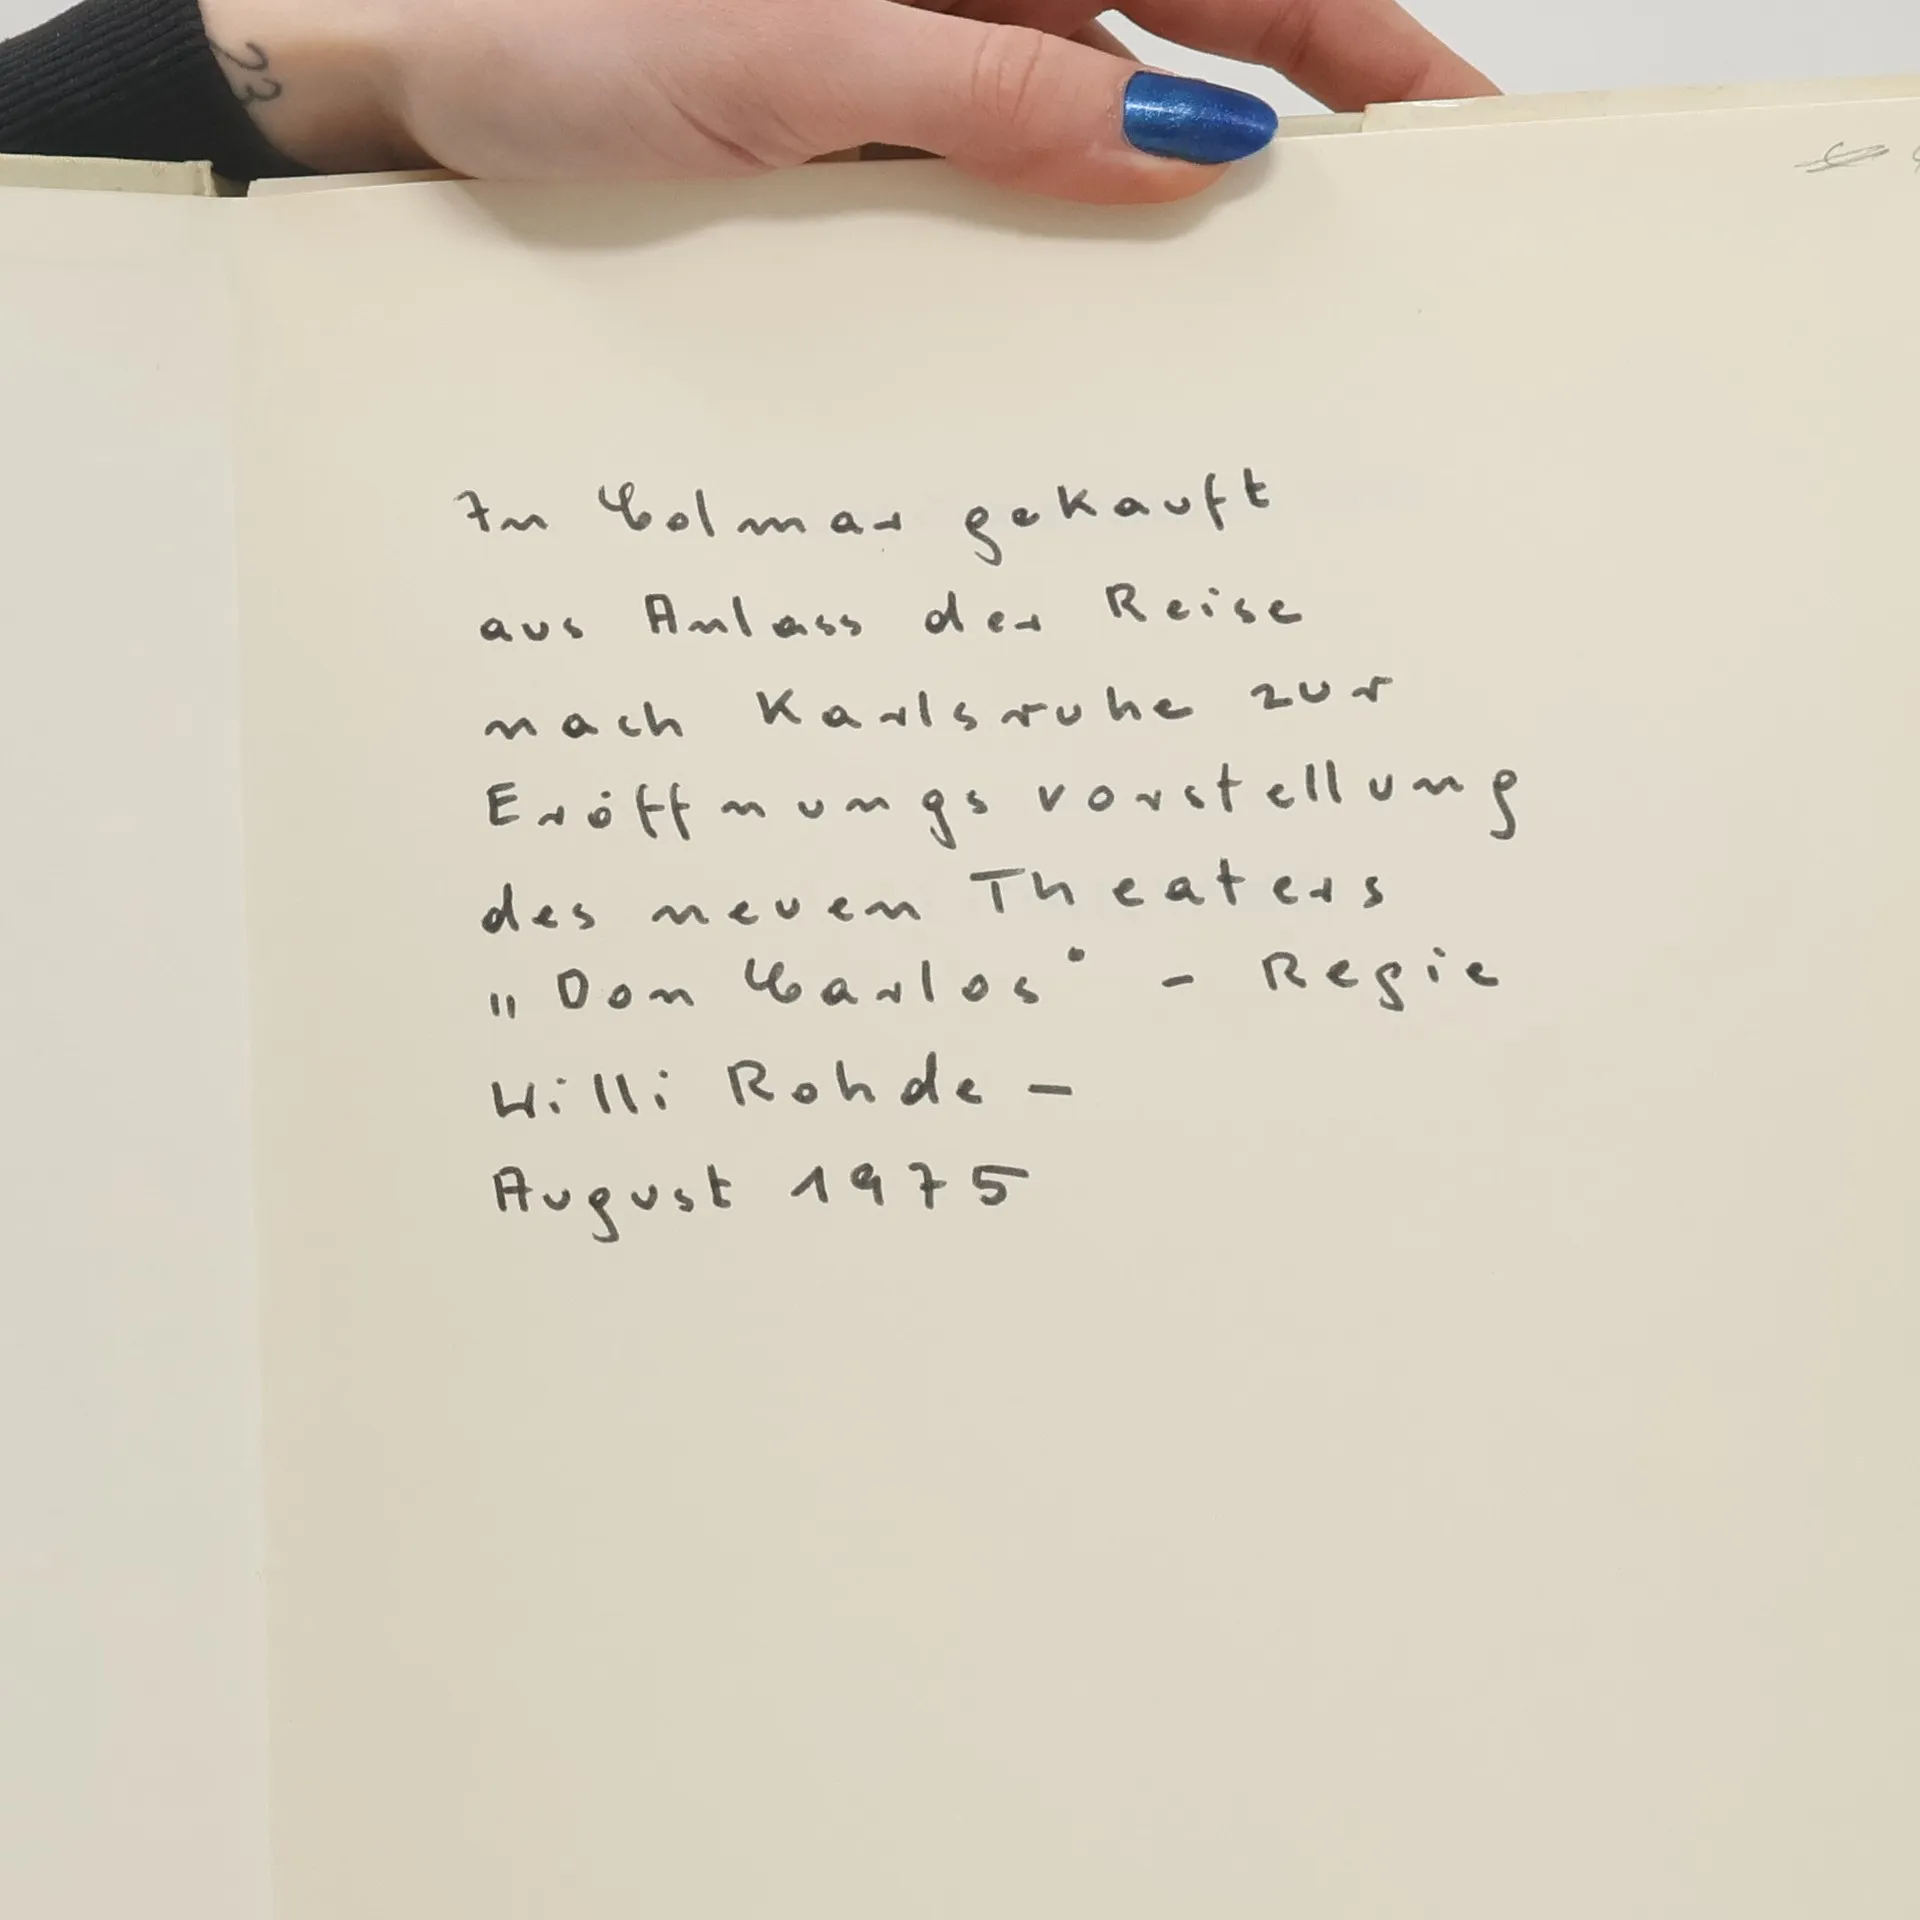 23
In Colmar gekauft
aus Anlass der Reise
nach Karlsruhe zur
Eröffnungsvorstellung
des neuen Theaters
„Don Carlos" - Regie
Willi Rohde -
August 1975